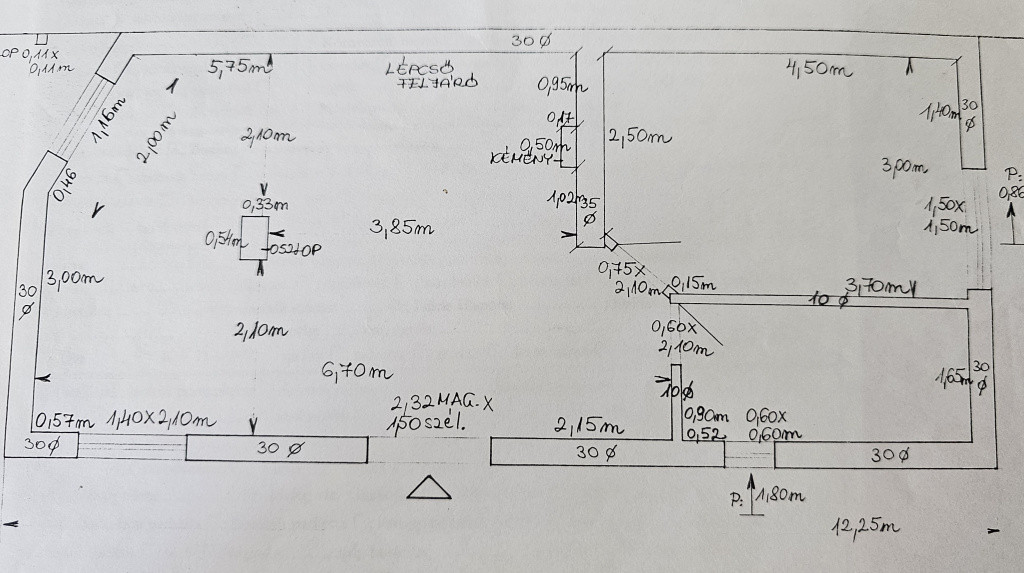 30 Ø
OP 0,11x
0,11m
5,75m
LÉPCSŐ
FELJÁRÓ
0,95m
4,50m
1,16m
2,00m
2,10m
0,17
0,50m
KÉMÉNY
2,50m
1,40m
30
Ø
3,00m
0,46
0,33m
0,54m
OSZLOP
3,85m
1,02m
35
Ø
1,50x
1,50m
P:
0,86
3,00m
30
Ø
0,75x
2,10m
0,15m
3,70m
10 Ø
2,10m
0,60x
2,10m
6,70m
10Ø
1,65m
30
Ø
2,32 MAG. x
1,50 szél.
0,57m
1,40x2,10m
2,15m
0,90m
0,52
0,60x
0,60m
30Ø
30 Ø
30 Ø
30 Ø
P:
1,80m
12,25m